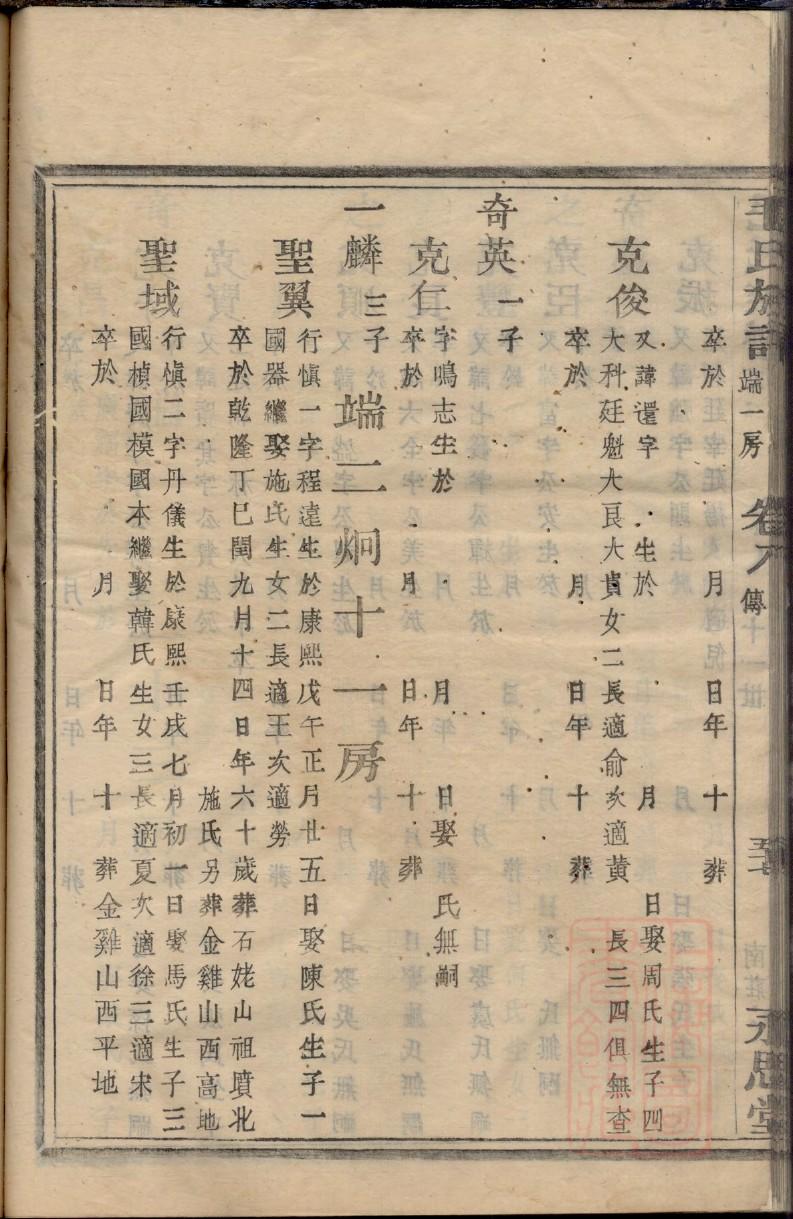 毛氏族譜 端一房 卷八 傳 南莊 永思堂
卒於 月 日年 十 葬
克俊 又諱還字 生於 月 日娶周氏生子四
大科廷魁大良大貴女二長適俞次適黃 長三四俱無查
卒於 月 日年 十 葬
奇英 一子
克仁 字鳴志生於 月 日娶 氏無嗣
卒於 月 日年 十 葬
一麟 三子 端二炯十一房
聖翼 行愼一字程遠生於康熙戊午正月廿五日娶陳氏生子一
國器繼娶施氏生女二長適王次適勞
卒於乾隆丁巳閏九月十四日年六十歲葬石姥山祖墳北
施氏另葬金雞山西高地
聖域 行愼二字丹儀生於康熙壬戌七月初一日娶馬氏生子三
國楨國模國本繼娶韓氏生女三長適夏次適徐三適宋
卒於 月 日年 十 葬金雞山西平地